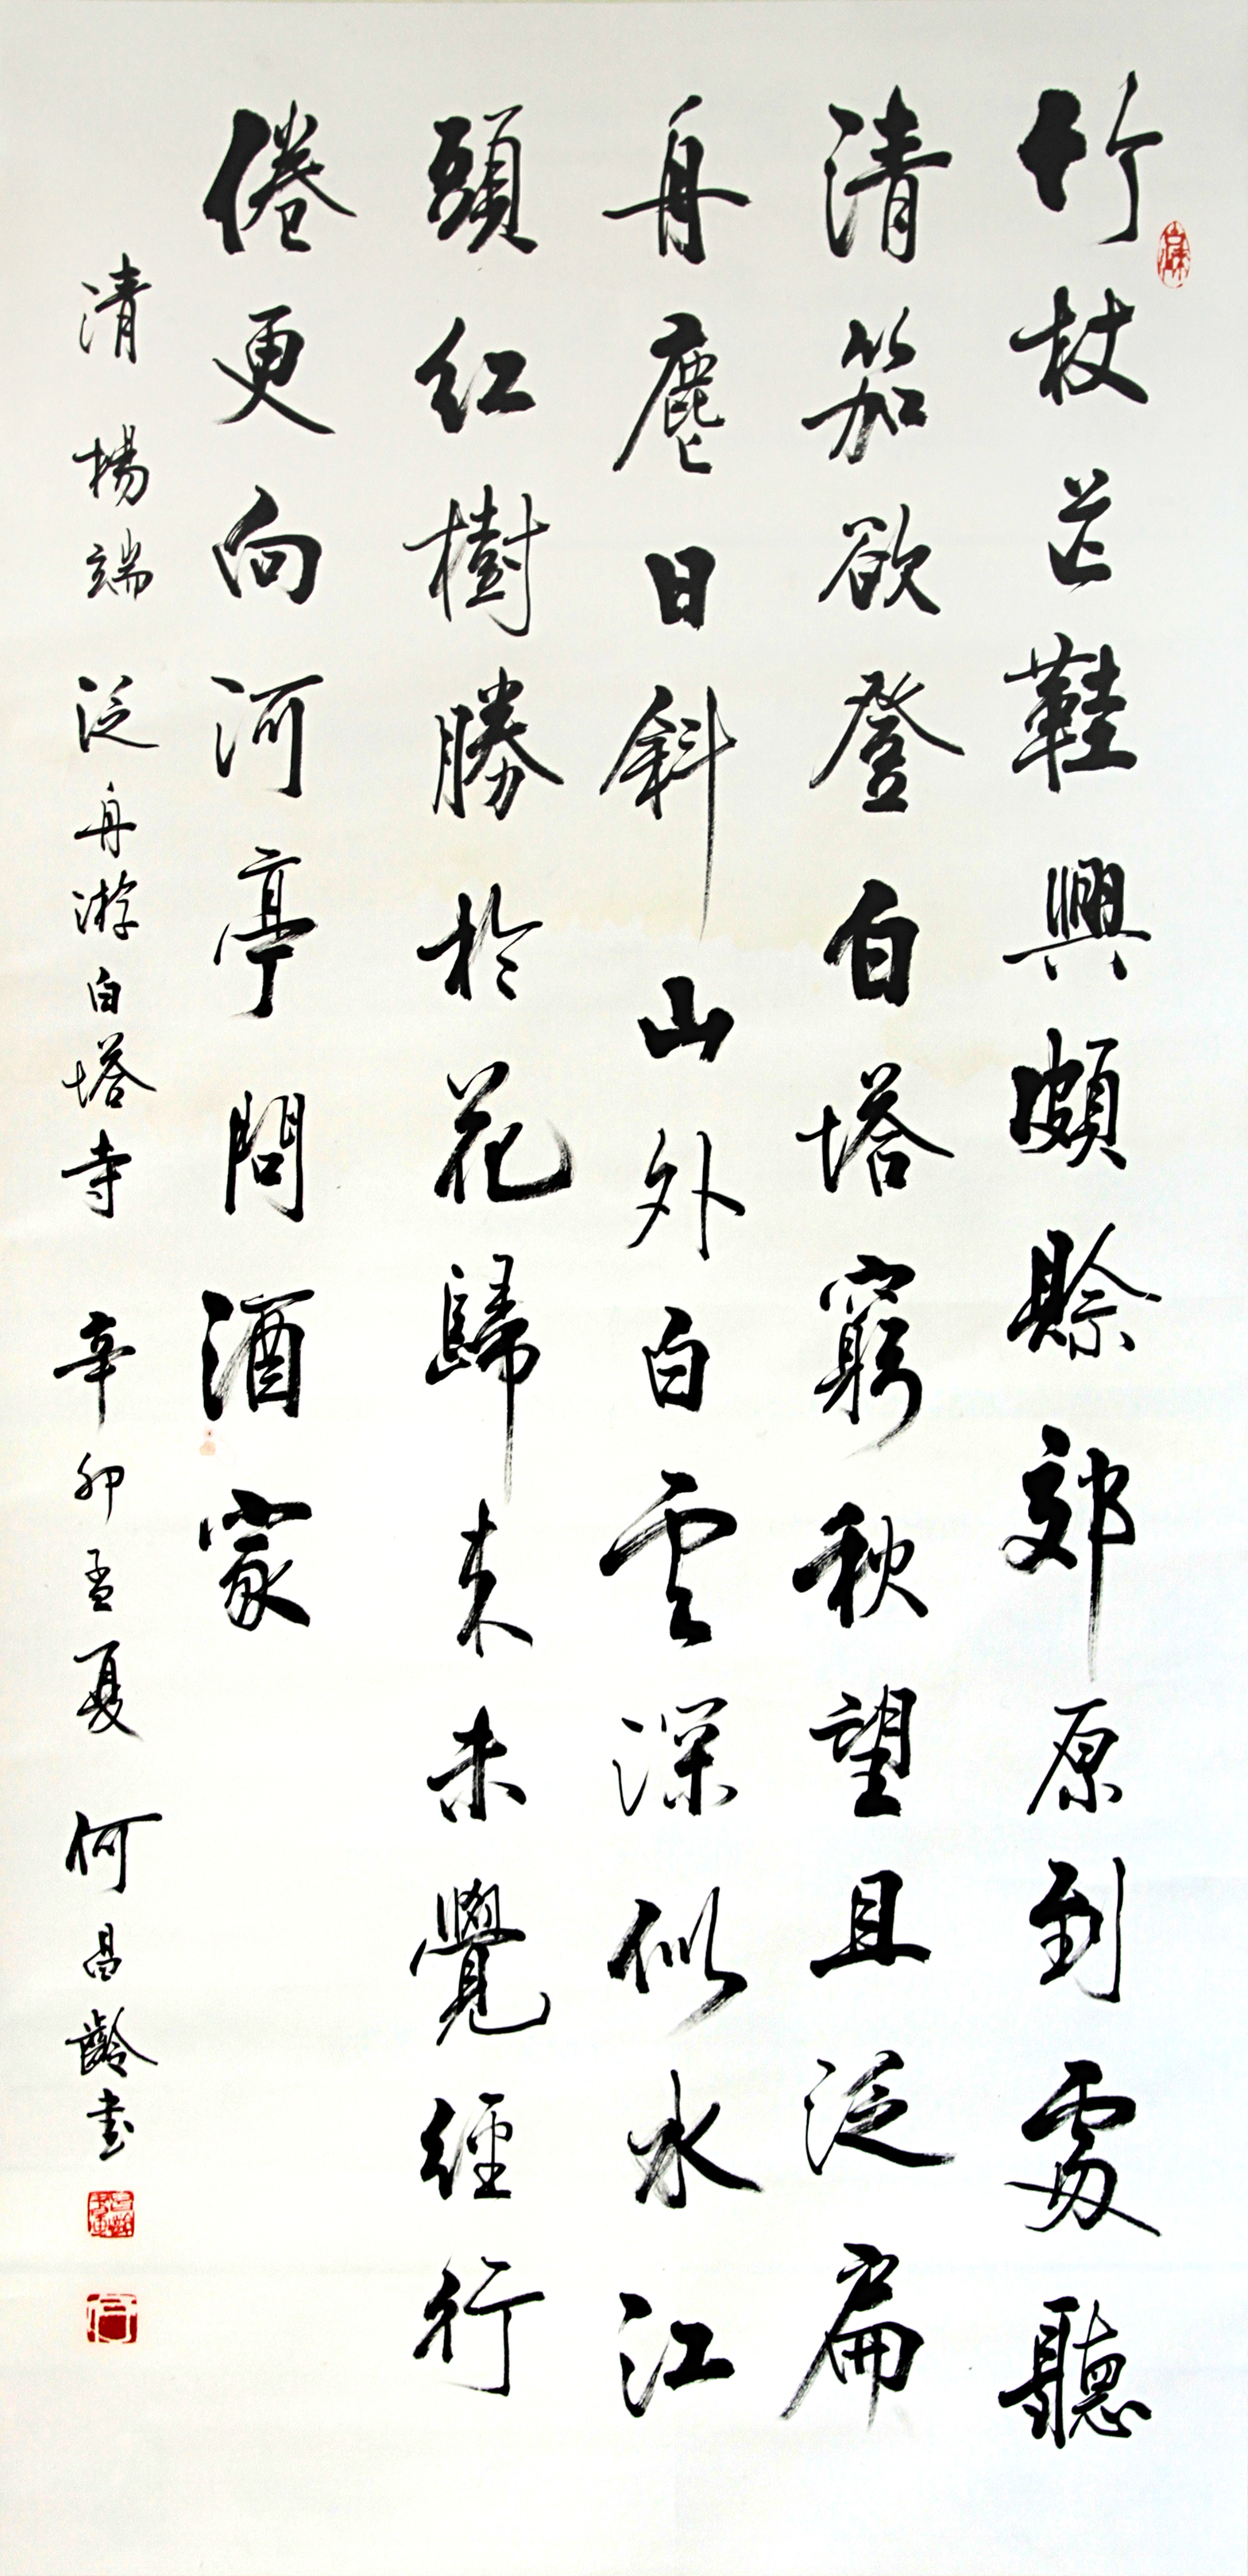 竹杖芒鞋興頗賒郊原到處聽
清笳欲登白塔窮秋望且泛扁
舟塵日斜山外白雲深似水江
頭紅樹勝於花歸來未覺經行
倦更向河亭問酒家
清 楊端 泛舟游白塔寺 辛卯孟夏 何昌齡書